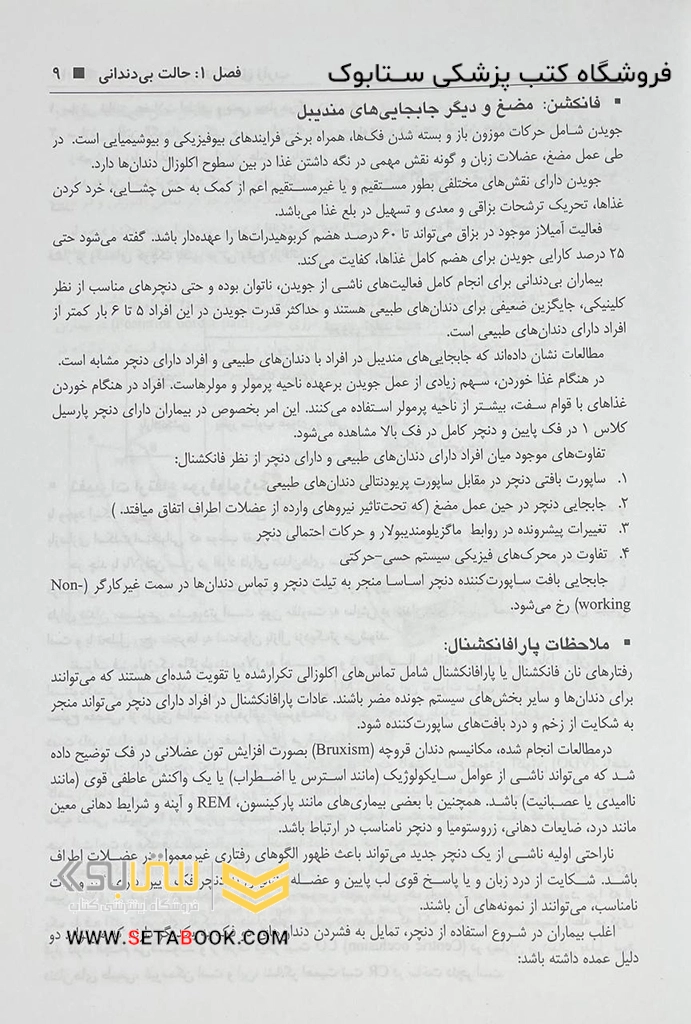 فروشگاه کتب پزشکی ستابوک
فصل ۱: حالت بی‌دندانی ■ ۹
▪ فانکشن: مضغ و دیگر جابجایی‌های مندیبل
جویدن شامل حرکات موزون باز و بسته شدن فک‌ها، همراه برخی فرایندهای بیوفیزیکی و بیوشیمیایی است. در
طی عمل مضغ، عضلات زبان و گونه نقش مهمی در نگه داشتن غذا در بین سطوح اکلوزال دندان‌ها دارد.
جویدن دارای نقش‌های مختلفی بطور مستقیم و یا غیرمستقیم اعم از کمک به حس چشایی، خرد کردن
غذاها، تحریک ترشحات بزاقی و معدی و تسهیل در بلع غذا می‌باشد.
فعالیت آمیلاز موجود در بزاق می‌تواند تا ۶۰ درصد هضم کربوهیدرات‌ها را عهده‌دار باشد. گفته می‌شود حتی
۲۵ درصد کارایی جویدن برای هضم کامل غذاها، کفایت می‌کند.
بیماران بی‌دندانی برای انجام کامل فعالیت‌های ناشی از جویدن، ناتوان بوده و حتی دنچرهای مناسب از نظر
کلینیکی، جایگزین ضعیفی برای دندان‌های طبیعی هستند و حداکثر قدرت جویدن در این افراد ۵ تا ۶ بار کمتر از
افراد دارای دندان‌های طبیعی است.
مطالعات نشان داده‌اند که جابجایی‌های مندیبل در افراد با دندان‌های طبیعی و افراد دارای دنچر مشابه است.
در هنگام غذا خوردن، سهم زیادی از عمل جویدن برعهده ناحیه پرمولر و مولرهاست. افراد در هنگام خوردن
غذاهای با قوام سفت، بیشتر از ناحیه پرمولر استفاده می‌کنند. این امر بخصوص در بیماران دارای دنچر پارسیل
کلاس ۱ در فک پایین و دنچر کامل در فک بالا مشاهده می‌شود.
تفاوت‌های موجود میان افراد دارای دندان‌های طبیعی و دارای دنچر از نظر فانکشنال:
۱. ساپورت بافتی دنچر در مقابل ساپورت پریودنتالی دندان‌های طبیعی
۲. جابجایی دنچر در حین عمل مضغ (که تحت‌تاثیر نیروهای وارده از عضلات اطراف اتفاق میافتد. )
۳. تغییرات پیشرونده در روابط ماگزیلومندیبولار و حرکات احتمالی دنچر
۴. تفاوت در محرک‌های فیزیکی سیستم حسی-حرکتی
جابجایی بافت ساپورت‌کننده دنچر اساسا منجر به تیلت دنچر و تماس دندان‌ها در سمت غیرکارگر (Non-
working) رخ می‌شود.
▪ ملاحظات پارافانکشنال:
رفتارهای نان فانکشنال یا پارافانکشنال شامل تماس‌های اکلوزالی تکرارشده یا تقویت شده‌ای هستند که می‌توانند
برای دندان‌ها و سایر بخش‌های سیستم جونده مضر باشند. عادات پارافانکشنال در افراد دارای دنچر می‌تواند منجر
به شکایت از زخم و درد بافت‌های ساپورت‌کننده شود.
درمطالعات انجام شده، مکانیسم دندان قروچه (Bruxism) بصورت افزایش تون عضلانی در فک توضیح داده
شد که می‌تواند ناشی از عوامل سایکولوژیک (مانند استرس یا اضطراب) یا یک واکنش عاطفی قوی (مانند
ناامیدی یا عصبانیت) باشد. همچنین با بعضی بیماری‌های مانند پارکینسون، REM و آپنه و شرایط دهانی معین
مانند درد، ضایعات دهانی، زروستومیا و دنچر نامناسب در ارتباط باشد.
ناراحتی اولیه ناشی از یک دنچر جدید می‌تواند باعث ظهور الگوهای رفتاری غیرمعمول در عضلات اطراف
باشد. شکایت از درد زبان و یا پاسخ قوی لب پایین و عضله دنچر فک
نامناسب، می‌توانند از نمونه‌های آن باشند.
اغلب بیماران در شروع استفاده از دنچر، تمایل به فشردن دندان‌های دو
دلیل عمده داشته باشد:
ستابوک
فروشگاه اینترنتی کتاب
WWW.SETABOOK.COM